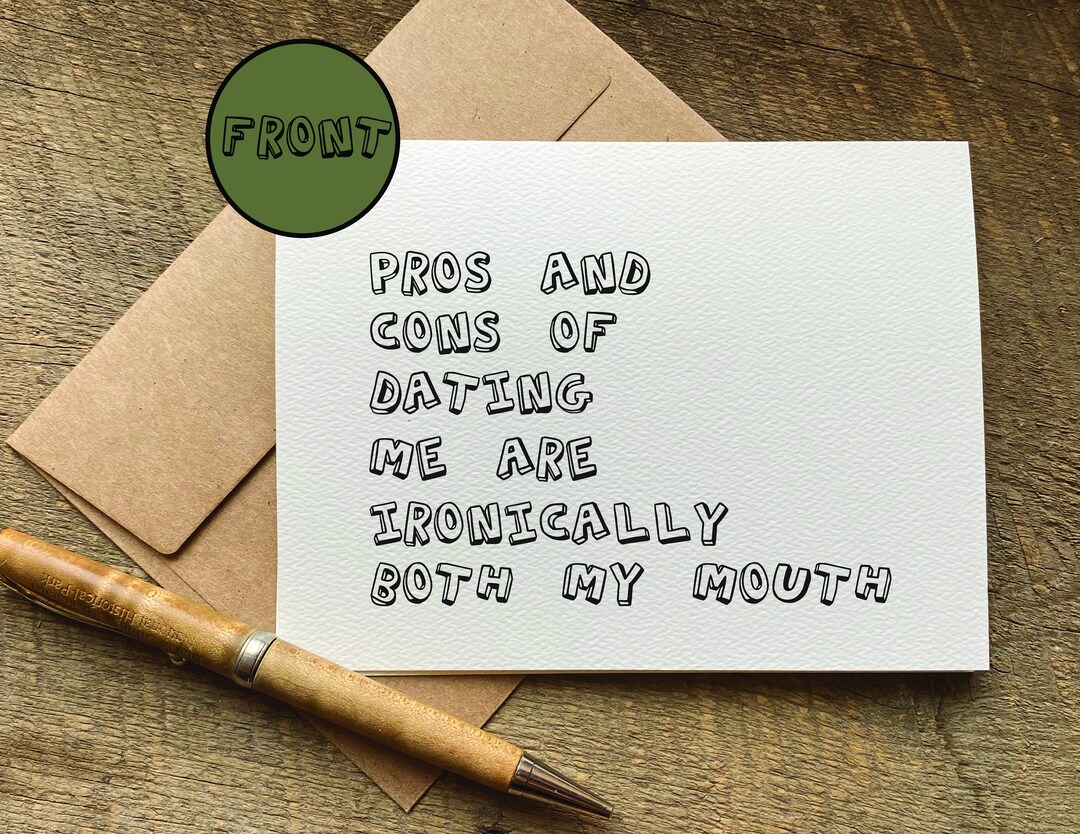 FRONT
PROS AND
CONS OF
DATING
ME ARE
IRONICALLY
BOTH MY MOUTH
Historical Park